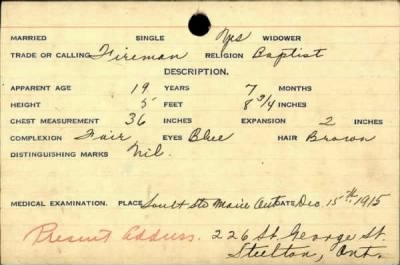 MARRIED SINGLE Yes WIDOWER
TRADE OR CALLING Fireman RELIGION Baptist
DESCRIPTION.
APPARENT AGE 19 YEARS 7 MONTHS
HEIGHT 5 FEET 8 3/4 INCHES
CHEST MEASUREMENT 36 INCHES EXPANSION 2 INCHES
COMPLEXION Fair EYES Blue HAIR Brown
DISTINGUISHING MARKS Nil.
MEDICAL EXAMINATION. PLACE Soult Ste Marie Ont DATE Dec. 15th 1915
Present Address. 226 St. George St.
Steelton, Ont.